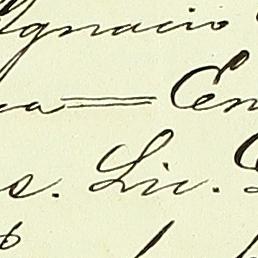 Ignacio
a = Cen
s. Lic.